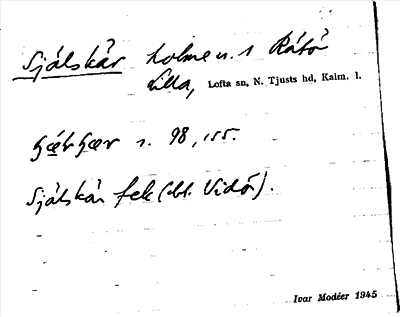 Sjálskår holme n. s Rátö
Lilla, Lofta sn, N. Tjusts hd, Kalm. l.
s. 98, 155.
Sjálskår fek (bl. Vidö).
Ivar Modéer 1945